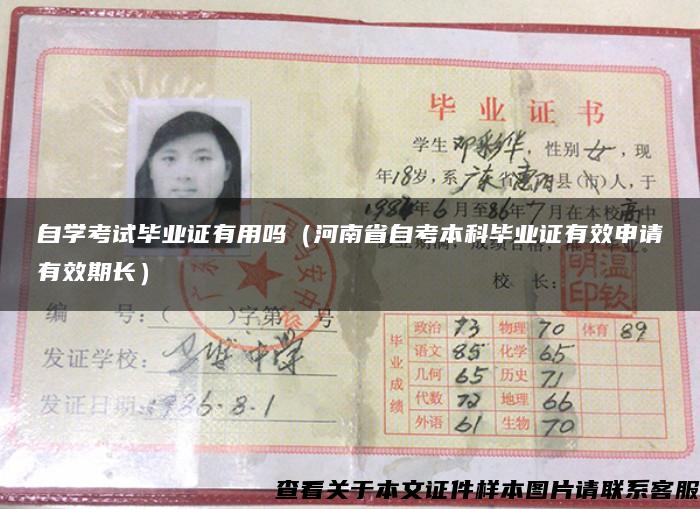 毕业证书
学生邓彩华，性别女，现
年18岁，系广东省惠阳县(市)人，于
198 年6月至86年7月在本校高
自学考试毕业证有用吗（河南省自考本科毕业证有效申请
有效期长）
校 长：
温钦
明印
编 号：（ ）字第 号
发证学校： 中学
发证日期：1986.8.1
毕业成绩
政治 73 物理 70 体育 89
语文 85 化学 65
几何 65 历史 71
代数 72 地理 66
外语 61 生物 70
查看关于本文证件样本图片请联系客服